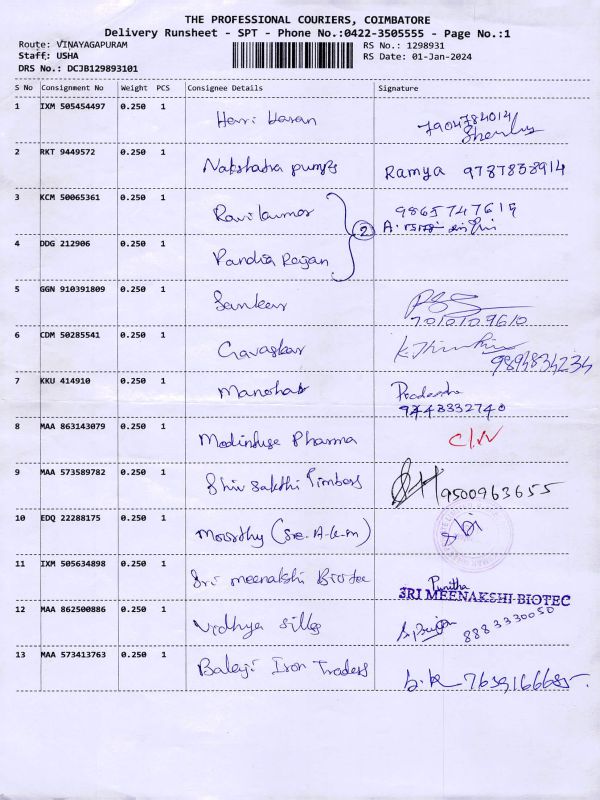 THE PROFESSIONAL COURIERS, COIMBATORE
Delivery Runsheet - SPT - Phone No.:0422-3505555 - Page No.:1
Route: VINAYAGAPURAM RS No.: 1298931
Staff: USHA RS Date: 01-Jan-2024
DRS No.: DCJB129893101
S No Consignment No Weight PCS Consignee Details Signature
1 IXM 505454497 0.250 1 Hari Haran 7904784014
2 RKT 9449572 0.250 1 Nakshatra pumps Ramya 9787838914
3 KCM 50065361 0.250 1 Ravikumar 9865747619
2
4 DDG 212906 0.250 1 Pandia Rajan
5 GGN 910391809 0.250 1 Sankar
7010109610
6 CDM 50285541 0.250 1 Gavaskar 9894834234
7 KKU 414910 0.250 1 Manohar
9443332740
8 MAA 863143079 0.250 1 Modinfuse Pharma
9 MAA 573589782 0.250 1 Shiv Sakthi Timbers 9500963655
10 EDQ 22288175 0.250 1 Moorthy
11 IXM 505634898 0.250 1 Sri meenakshi Biotec Punitha
SRI MEENAKSHI BIOTEC
12 MAA 862500886 0.250 1 Vidhya silks 8883330050
13 MAA 573413763 0.250 1 Balaji Iron Traders 7639166685